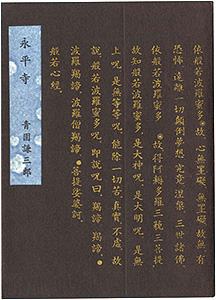 依般若波羅蜜多故、心無罣礙、無罣礙故、無有
恐怖、遠離一切顛倒夢想、究竟涅槃、三世諸佛、
依般若波羅蜜多故、得阿耨多羅三藐三菩提、
故知般若波羅蜜多、是大神呪、是大明呪、是無
上呪、是無等等呪、能除一切苦、真實不虛、故
說般若波羅蜜多呪、即說呪曰、羯諦、羯諦、
波羅羯諦、波羅僧羯諦、菩提娑婆訶、
般若心經、
永平寺 青園謙三郎